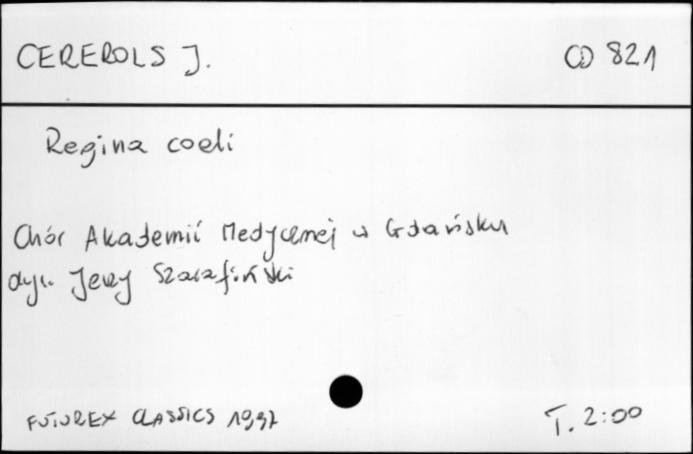 CEREROLS J.
CD 821
Regina coeli
Chór Akademii Medycznej w Gdańsku
dyr. Jerzy Szarafiński
FUTUREX CLASSICS 1997
T. 2:00